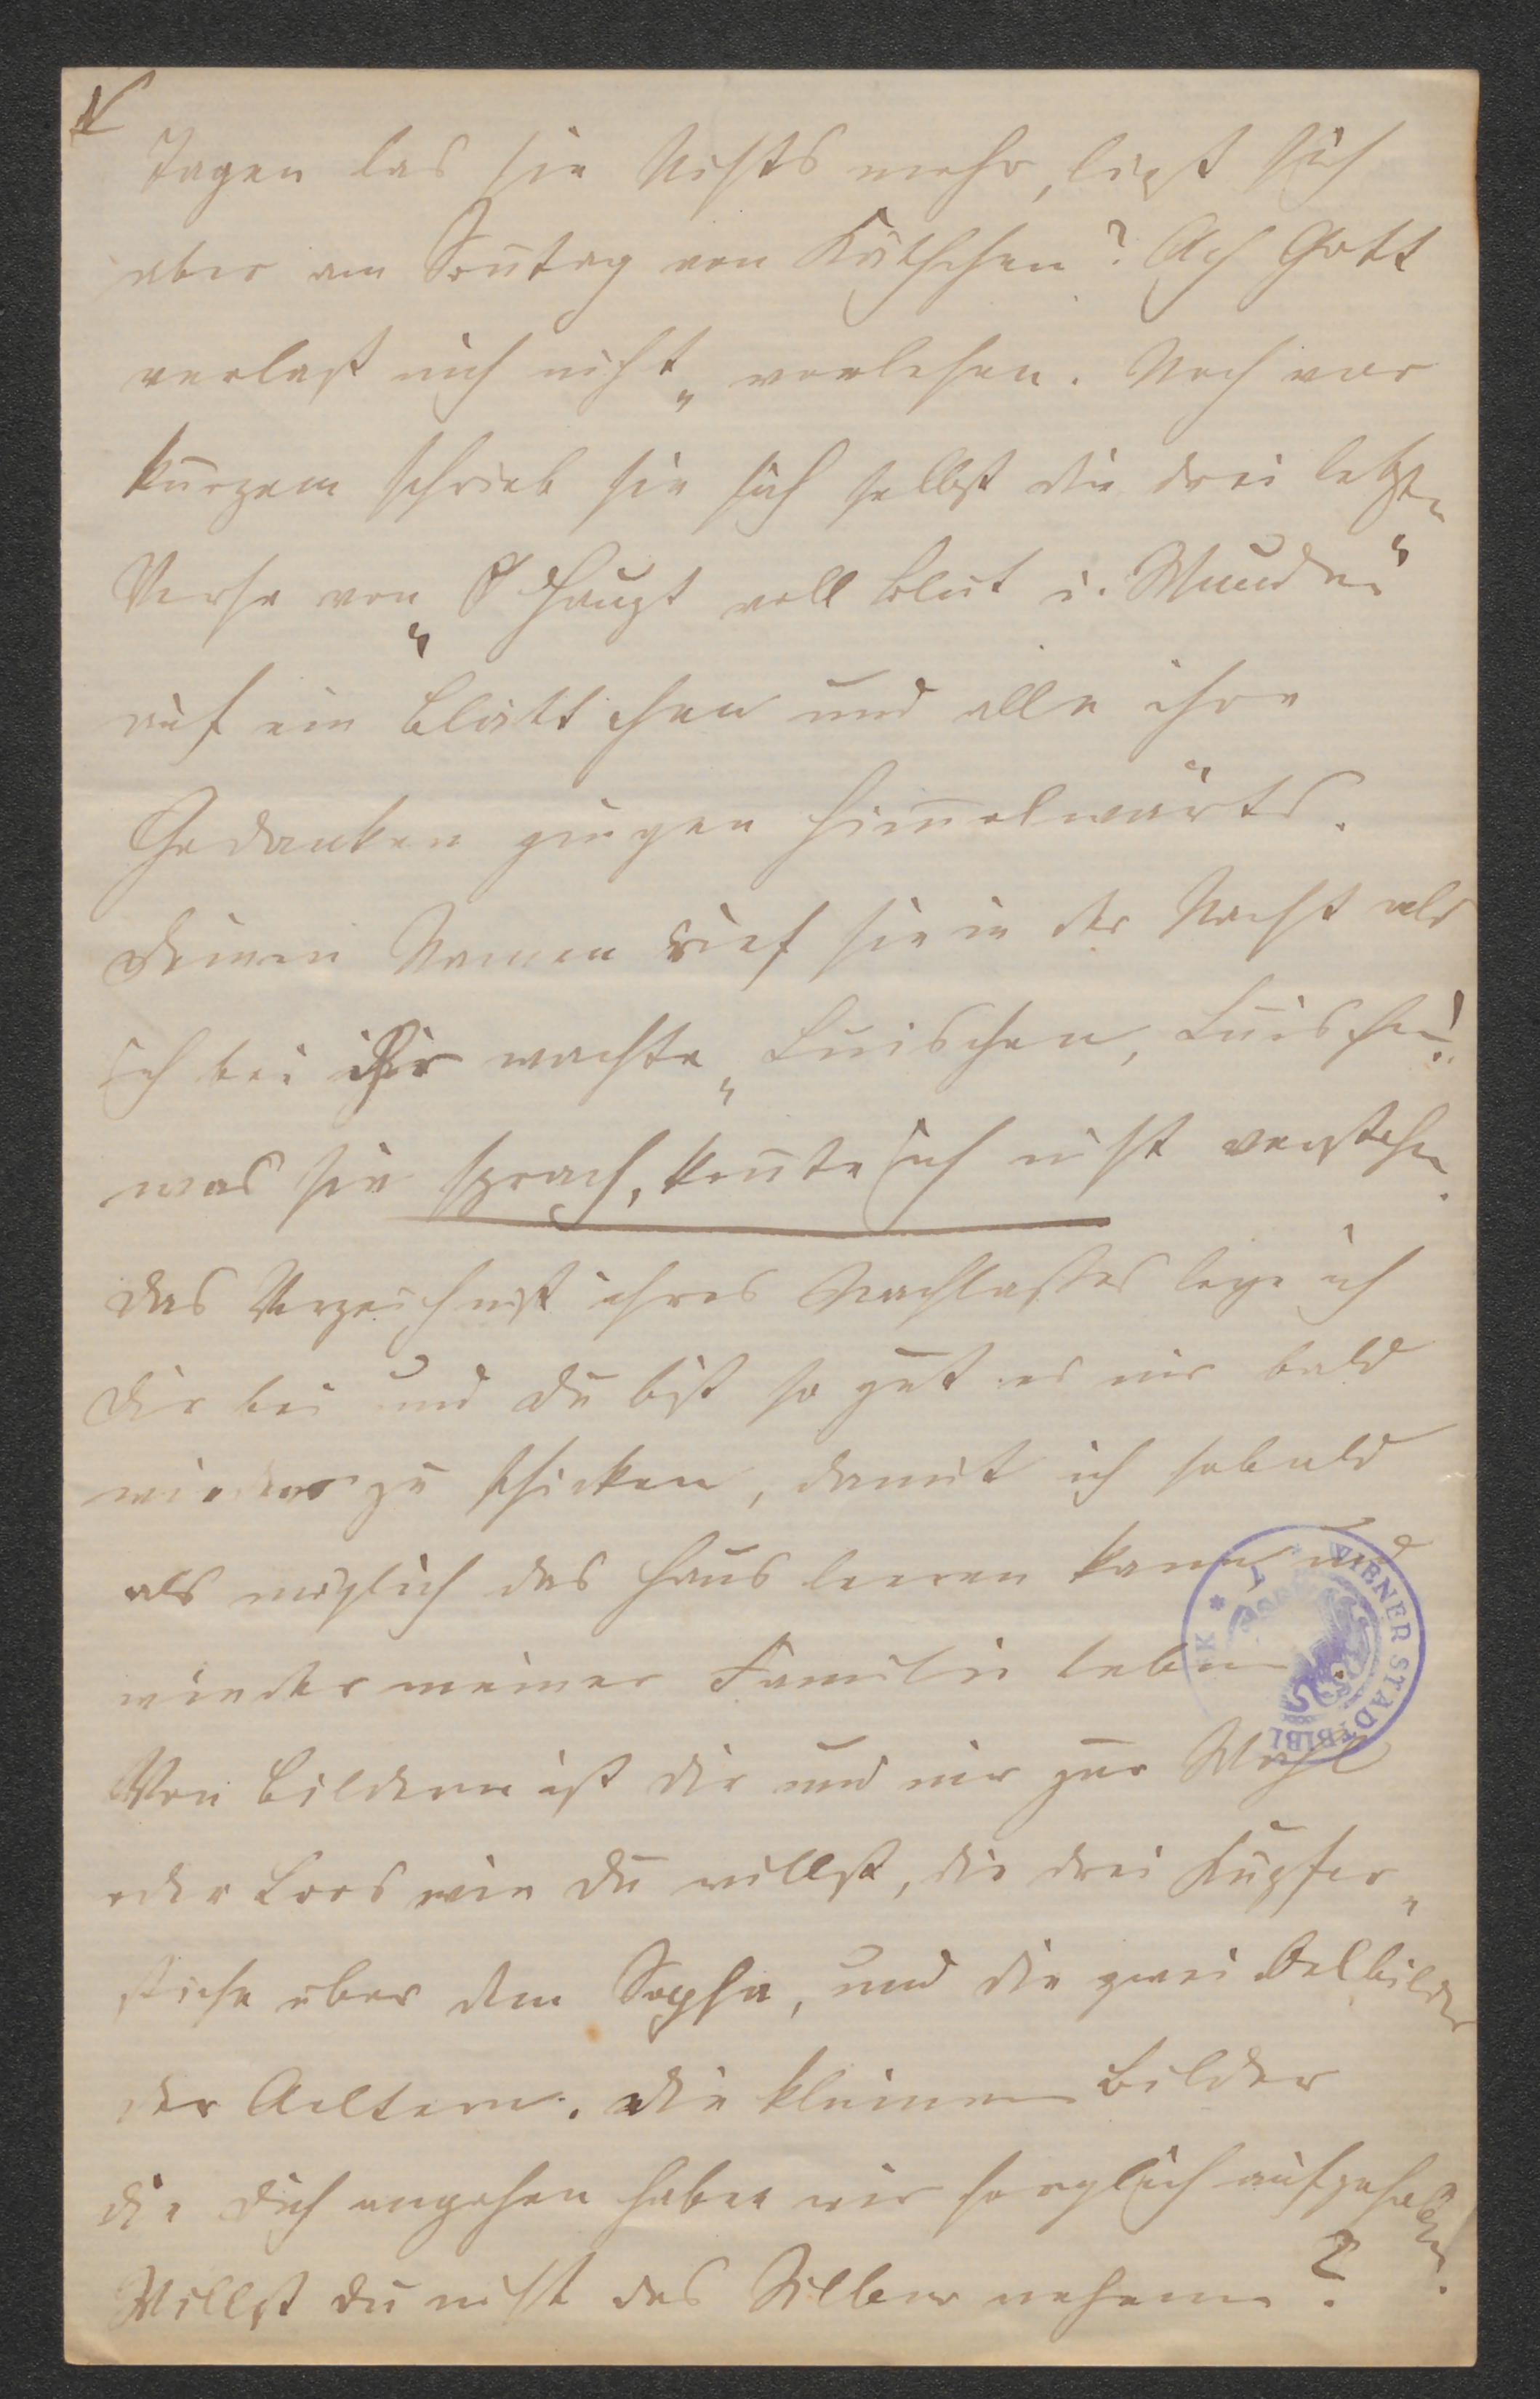 Tagen las sie Nichts mehr, ließ sich
aber am Soñtag von Käthchen? Ach Gott
verlaß mich nicht" vorlesen. Noch vor
kurzem schrieb sie sich selbst die drei letzten
Verse von "O Haupt voll Blut u. Wunden"
auf ein Blättchen und alle ihre
Gedanken gingen him̄elwärts.
Deinen Namen rief sie in der Nacht als
ich bei ihr wachte „Luischen, Luischen!"
was sie sprach, koñte ich nicht verstehen.
Das Verzeichniß ihres Nachlaßes lege ich
Dir bei und Du bist so gut es mir bald
wieder zu schicken, damit ich sobald
als möglich das Haus leeren kann, und
wieder meiner Familie leben.
Von Bildern ist Dir und mir zur Wahl
oder Loos wie Du willst, die drei Kupfer„
stiche über dem Sopha, und die zwei Oelbilder
der Aeltern. Die kleinen Bilder
die Dich angehen haben wir sorglich aufgehoben.
Willst Du nicht das Silber nehmen?
WIENER STADTBIBL K